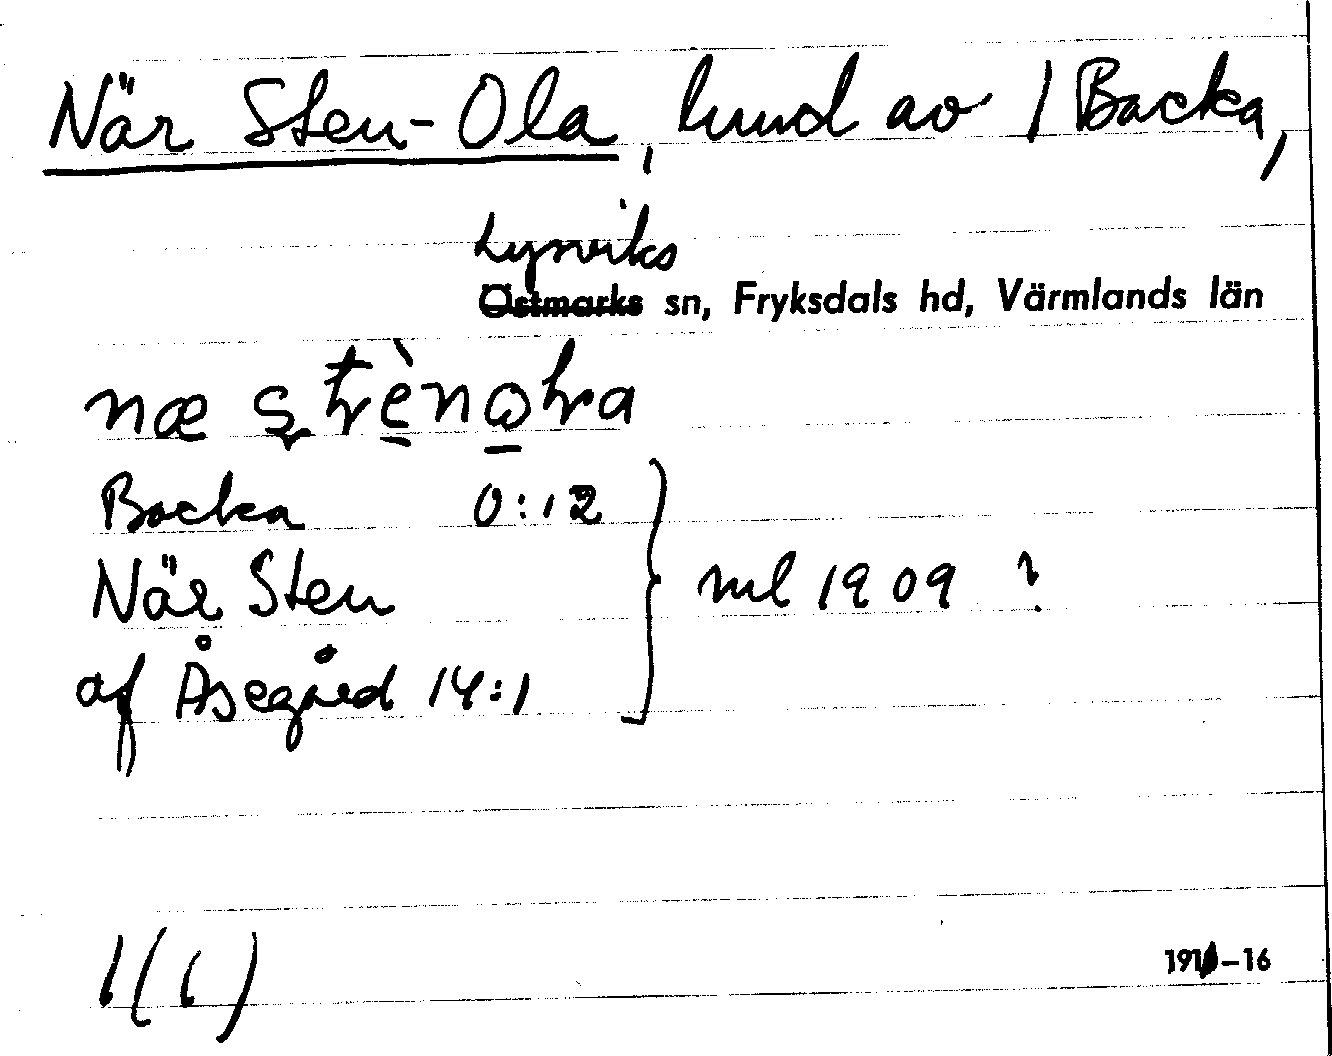 När Sten-Ola, kund av 1 Backa,
Lysviks
Östmarks sn, Fryksdals hd, Värmlands län
Backa 0:12
När Sten
af Åsegård 14:1
ml 1909 ?
1(1)
1911-16